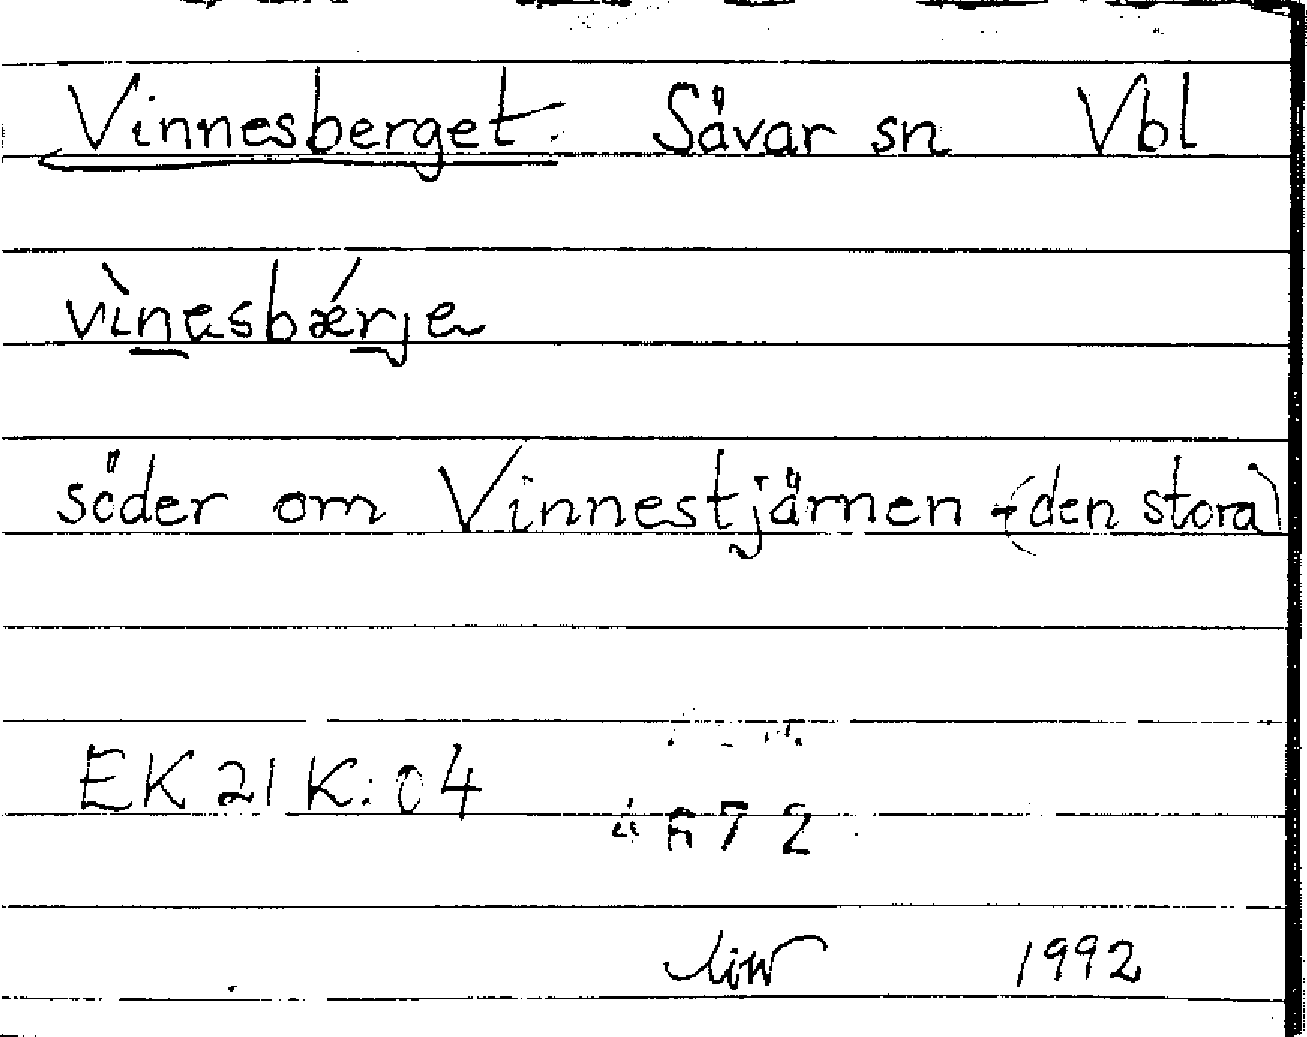 Vinnesberget. Sävar sn Vbl
vìnesbǽrje
söder om Vinnestjärnen (den stora)
EK 21 K: 04
1992